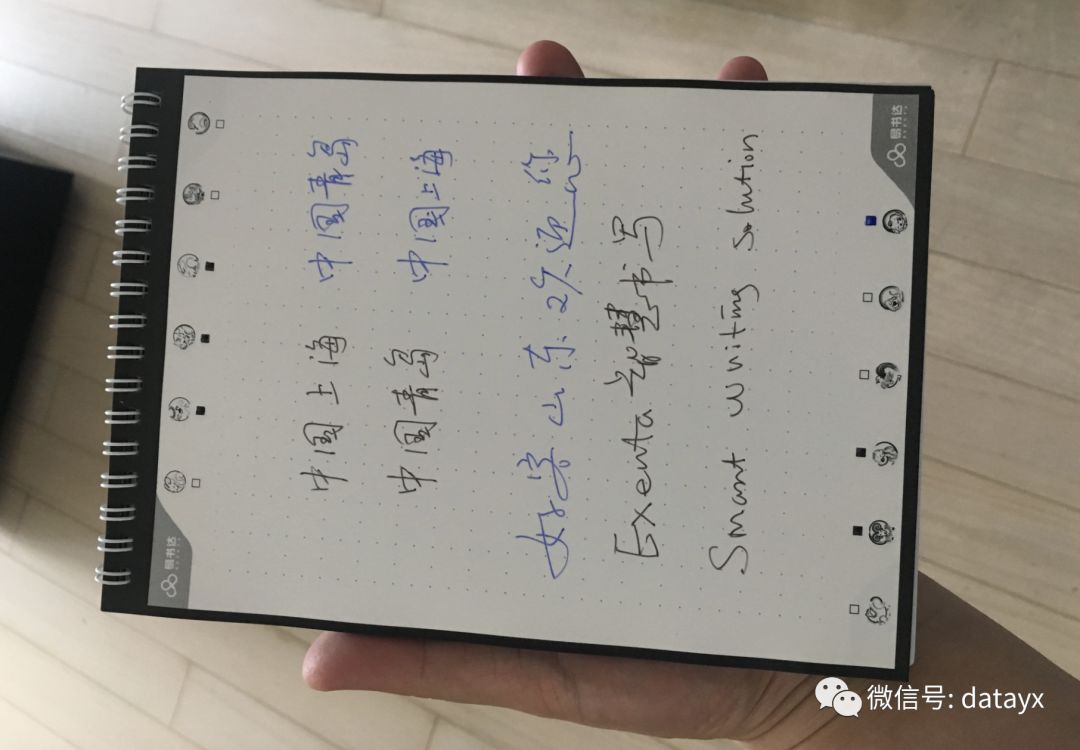 易书达
中国上海 中国青岛
中国青岛 中国上海
好客山东 欢迎您
Exenta 智慧书写
Smart writing solution
易书达
微信号: datayx